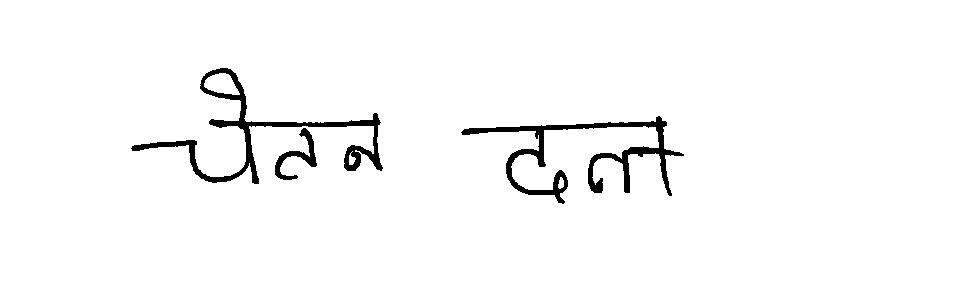 चेतन दत्ता